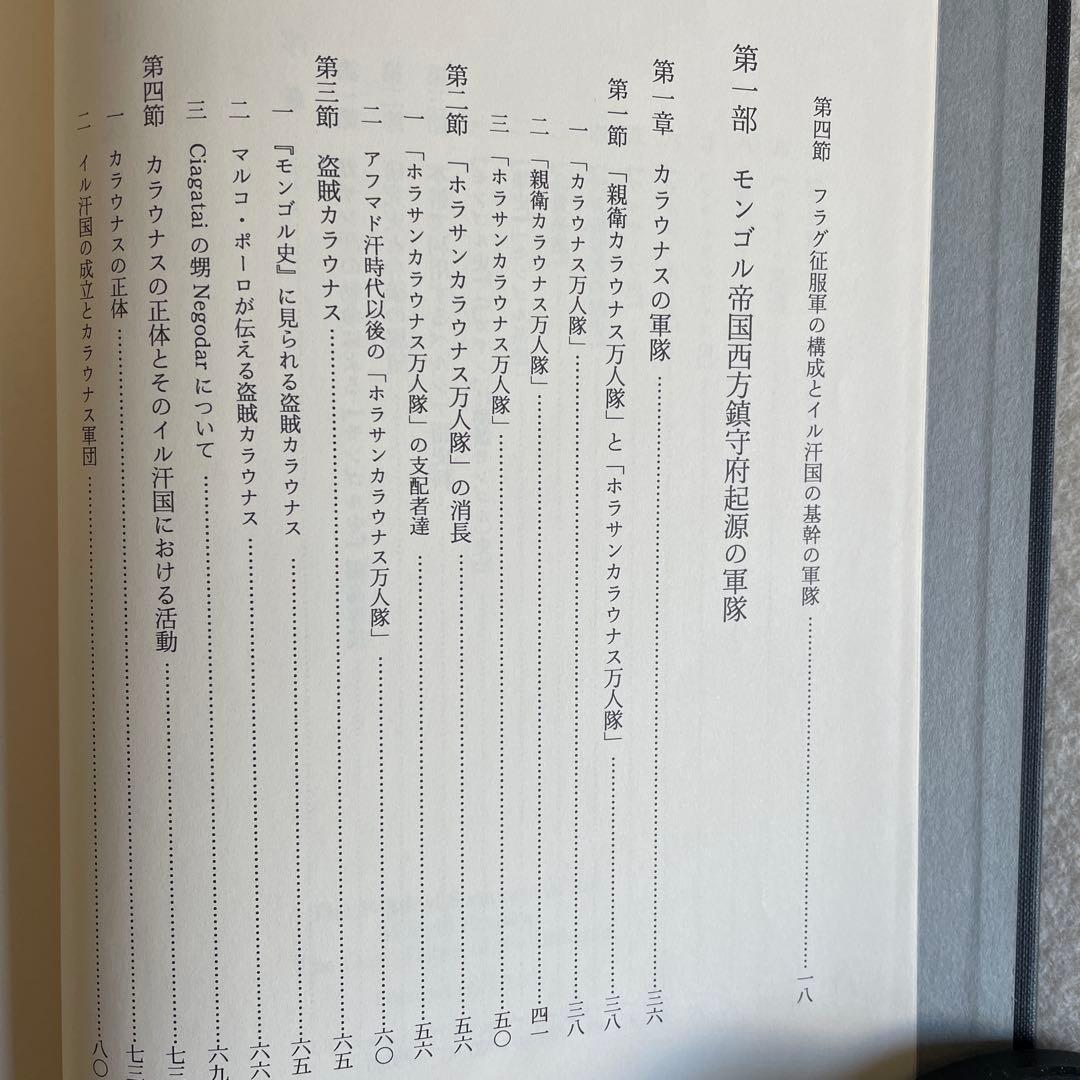 第四節 フラグ征服軍の構成とイル汗国の基幹の軍隊………一八
第一部 モンゴル帝国西方鎮守府起源の軍隊
第一章 カラウナスの軍隊………三六
第一節 「親衛カラウナス万人隊」と「ホラサンカラウナス万人隊」………三八
一 「カラウナス万人隊」………三八
二 「親衛カラウナス万人隊」………四一
三 「ホラサンカラウナス万人隊」………五〇
第二節 「ホラサンカラウナス万人隊」の消長………五六
一 「ホラサンカラウナス万人隊」の支配者達………五六
二 アフマド汗時代以後の「ホラサンカラウナス万人隊」………六〇
第三節 盗賊カラウナス………六五
一 『モンゴル史』に見られる盗賊カラウナス………六五
二 マルコ・ポーロが伝える盗賊カラウナス………六六
三 Ciagatai の甥 Negodar について………六九
第四節 カラウナスの正体とそのイル汗国における活動………七三
一 カラウナスの正体………七三
二 イル汗国の成立とカラウナス軍団………八〇